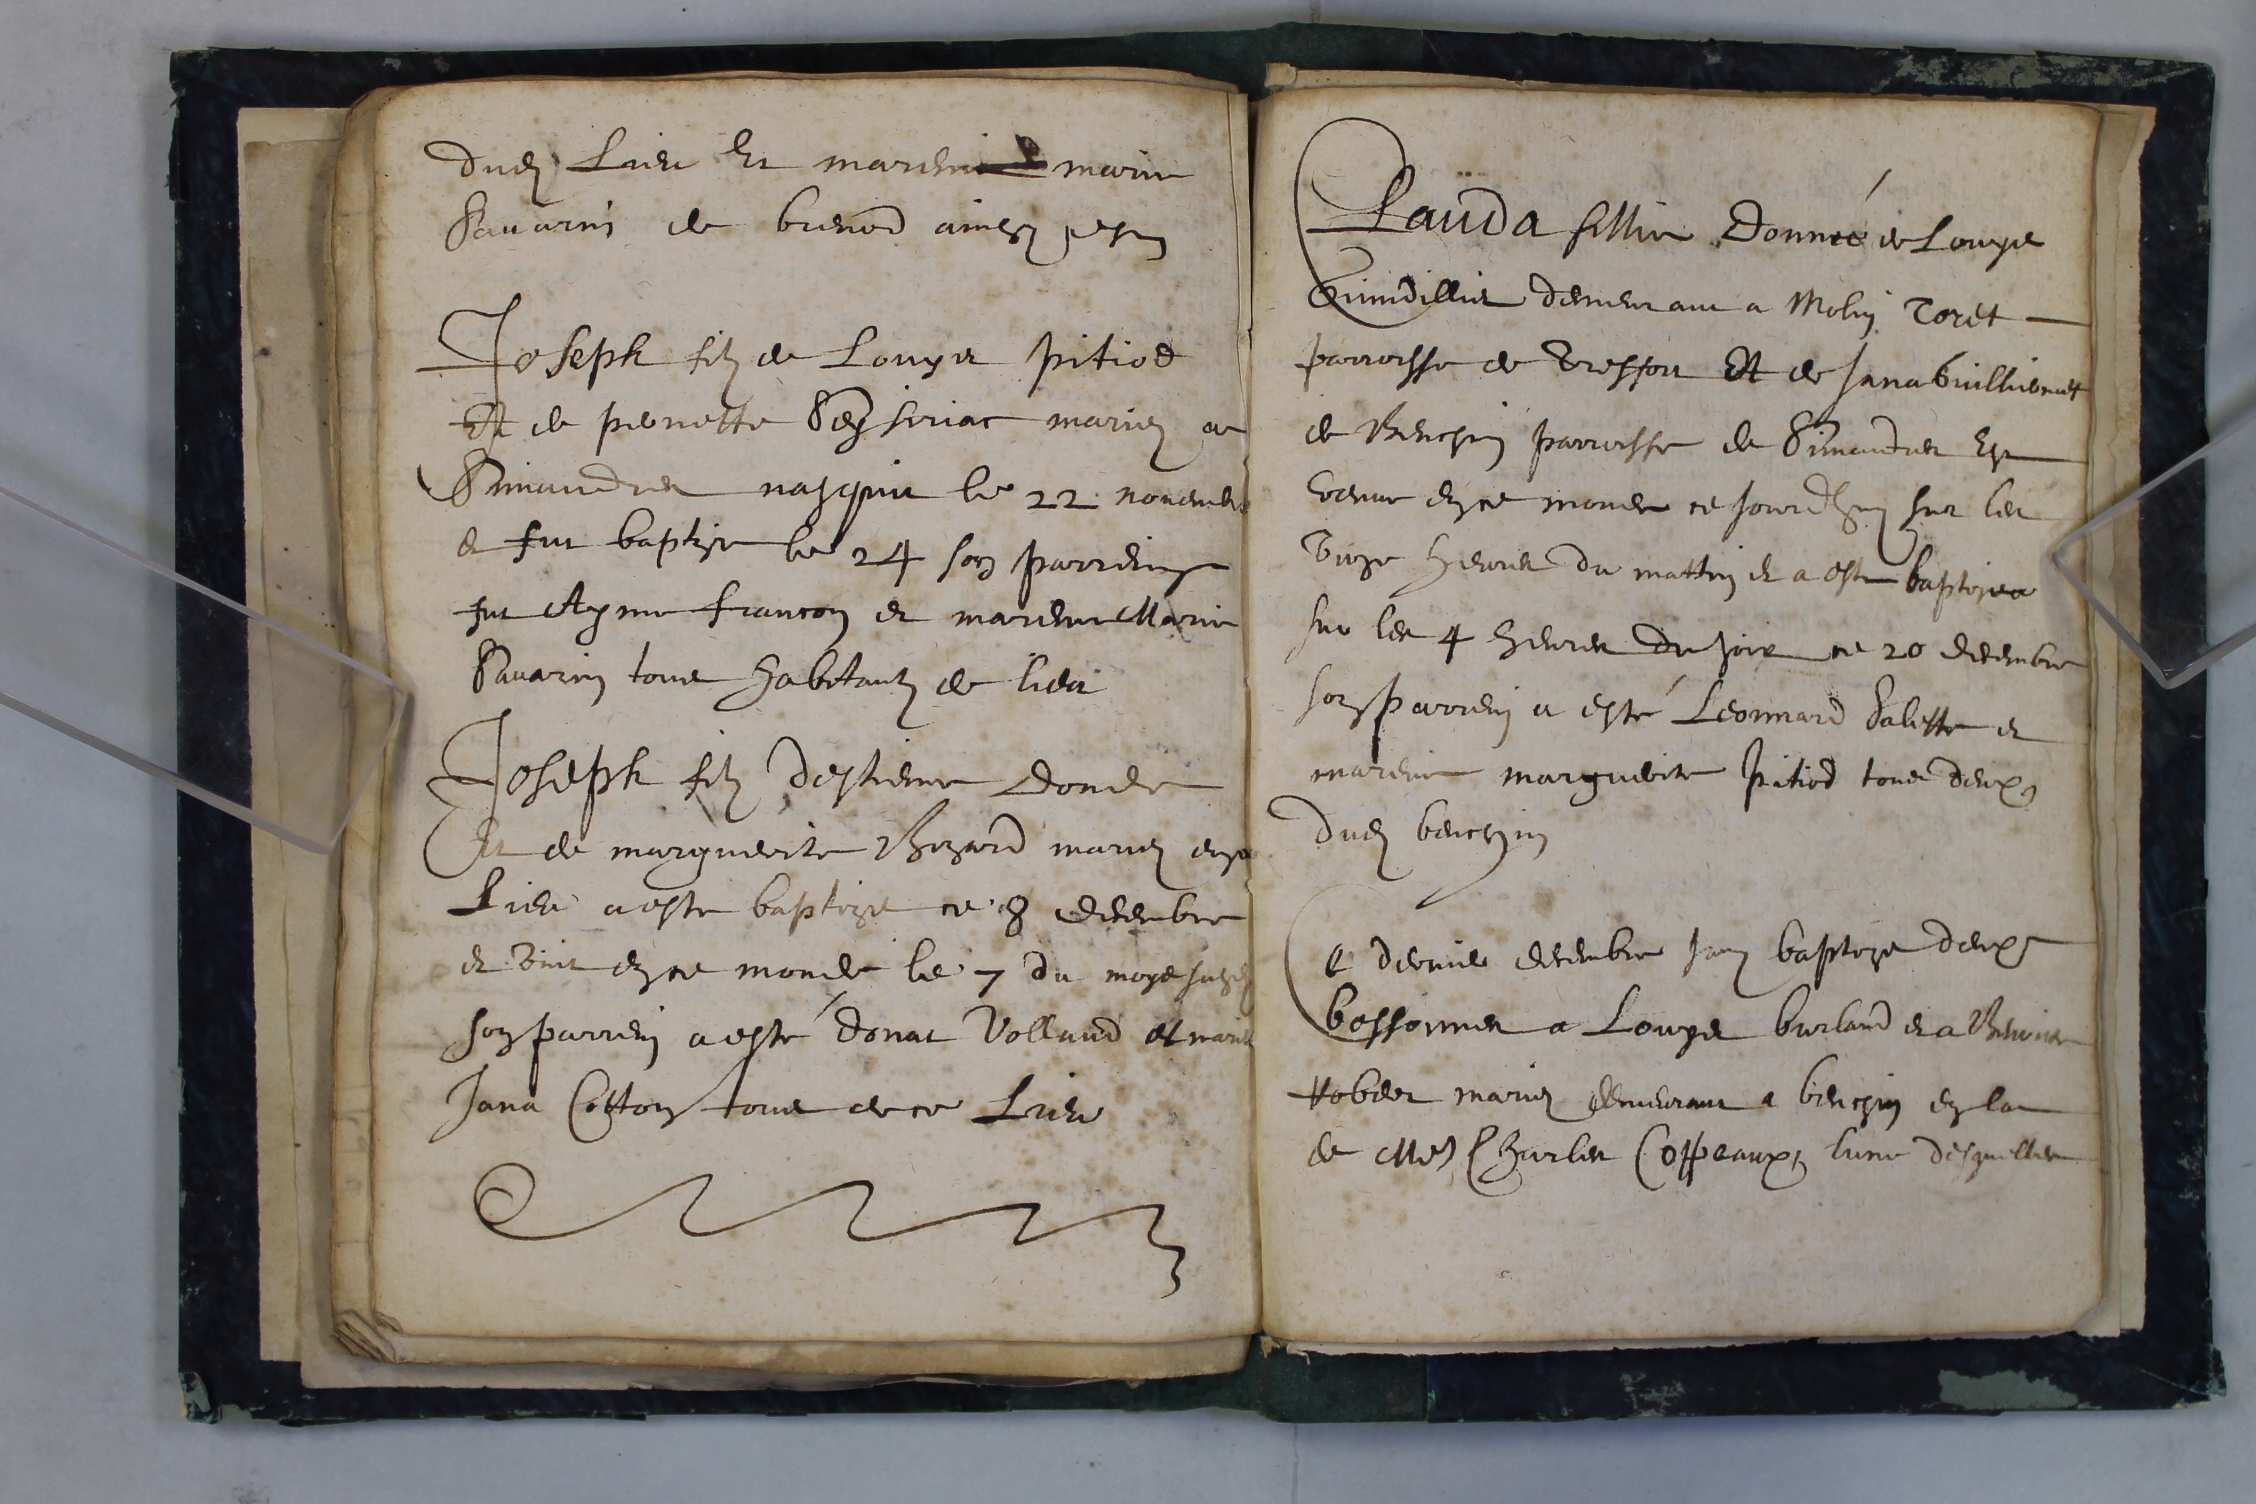 dud Lieu Et mareine marie
Savarin de brenod ainsy
Joseph filz de Louys pitiod
Et de pernette Seyseriac mariez a
Simandres nasquit le 22 novembre
et fut baptize le 24 son parreing
fut Ayme francon et mareine Marie
Savarin tous habitantz de lieu
Joseph filz d'estienne Donde
Et de marguerite Bozard mariez en ce
Lieu a este baptize ce 8 decembre
et vint en ce monde le 7 du moys susd
son parrein a esté donat Volland et mareine
Jana Cotton tous de ce Lieu
Clauda fillie Donneé de Louys
demeurant a Molin Toret
parroisse de Tressort Et de Jana Guilliermet
de Benchin parroisse de Simandres Est
venue en ce monde ce jourdhuy sur les
unze heures du mattin et a este baptizea
sur les 4 heures du soir ce 20 decembre
son parrein a esté Leonnard Salette et
mareine marguerite Pitiod tous deux
dud benchin
Ce dernier decembre jay baptize deux
bessonnes a Louys burland et a
demeurant a benchin en la
de Mes Charles Coppeaux, lune desquelles